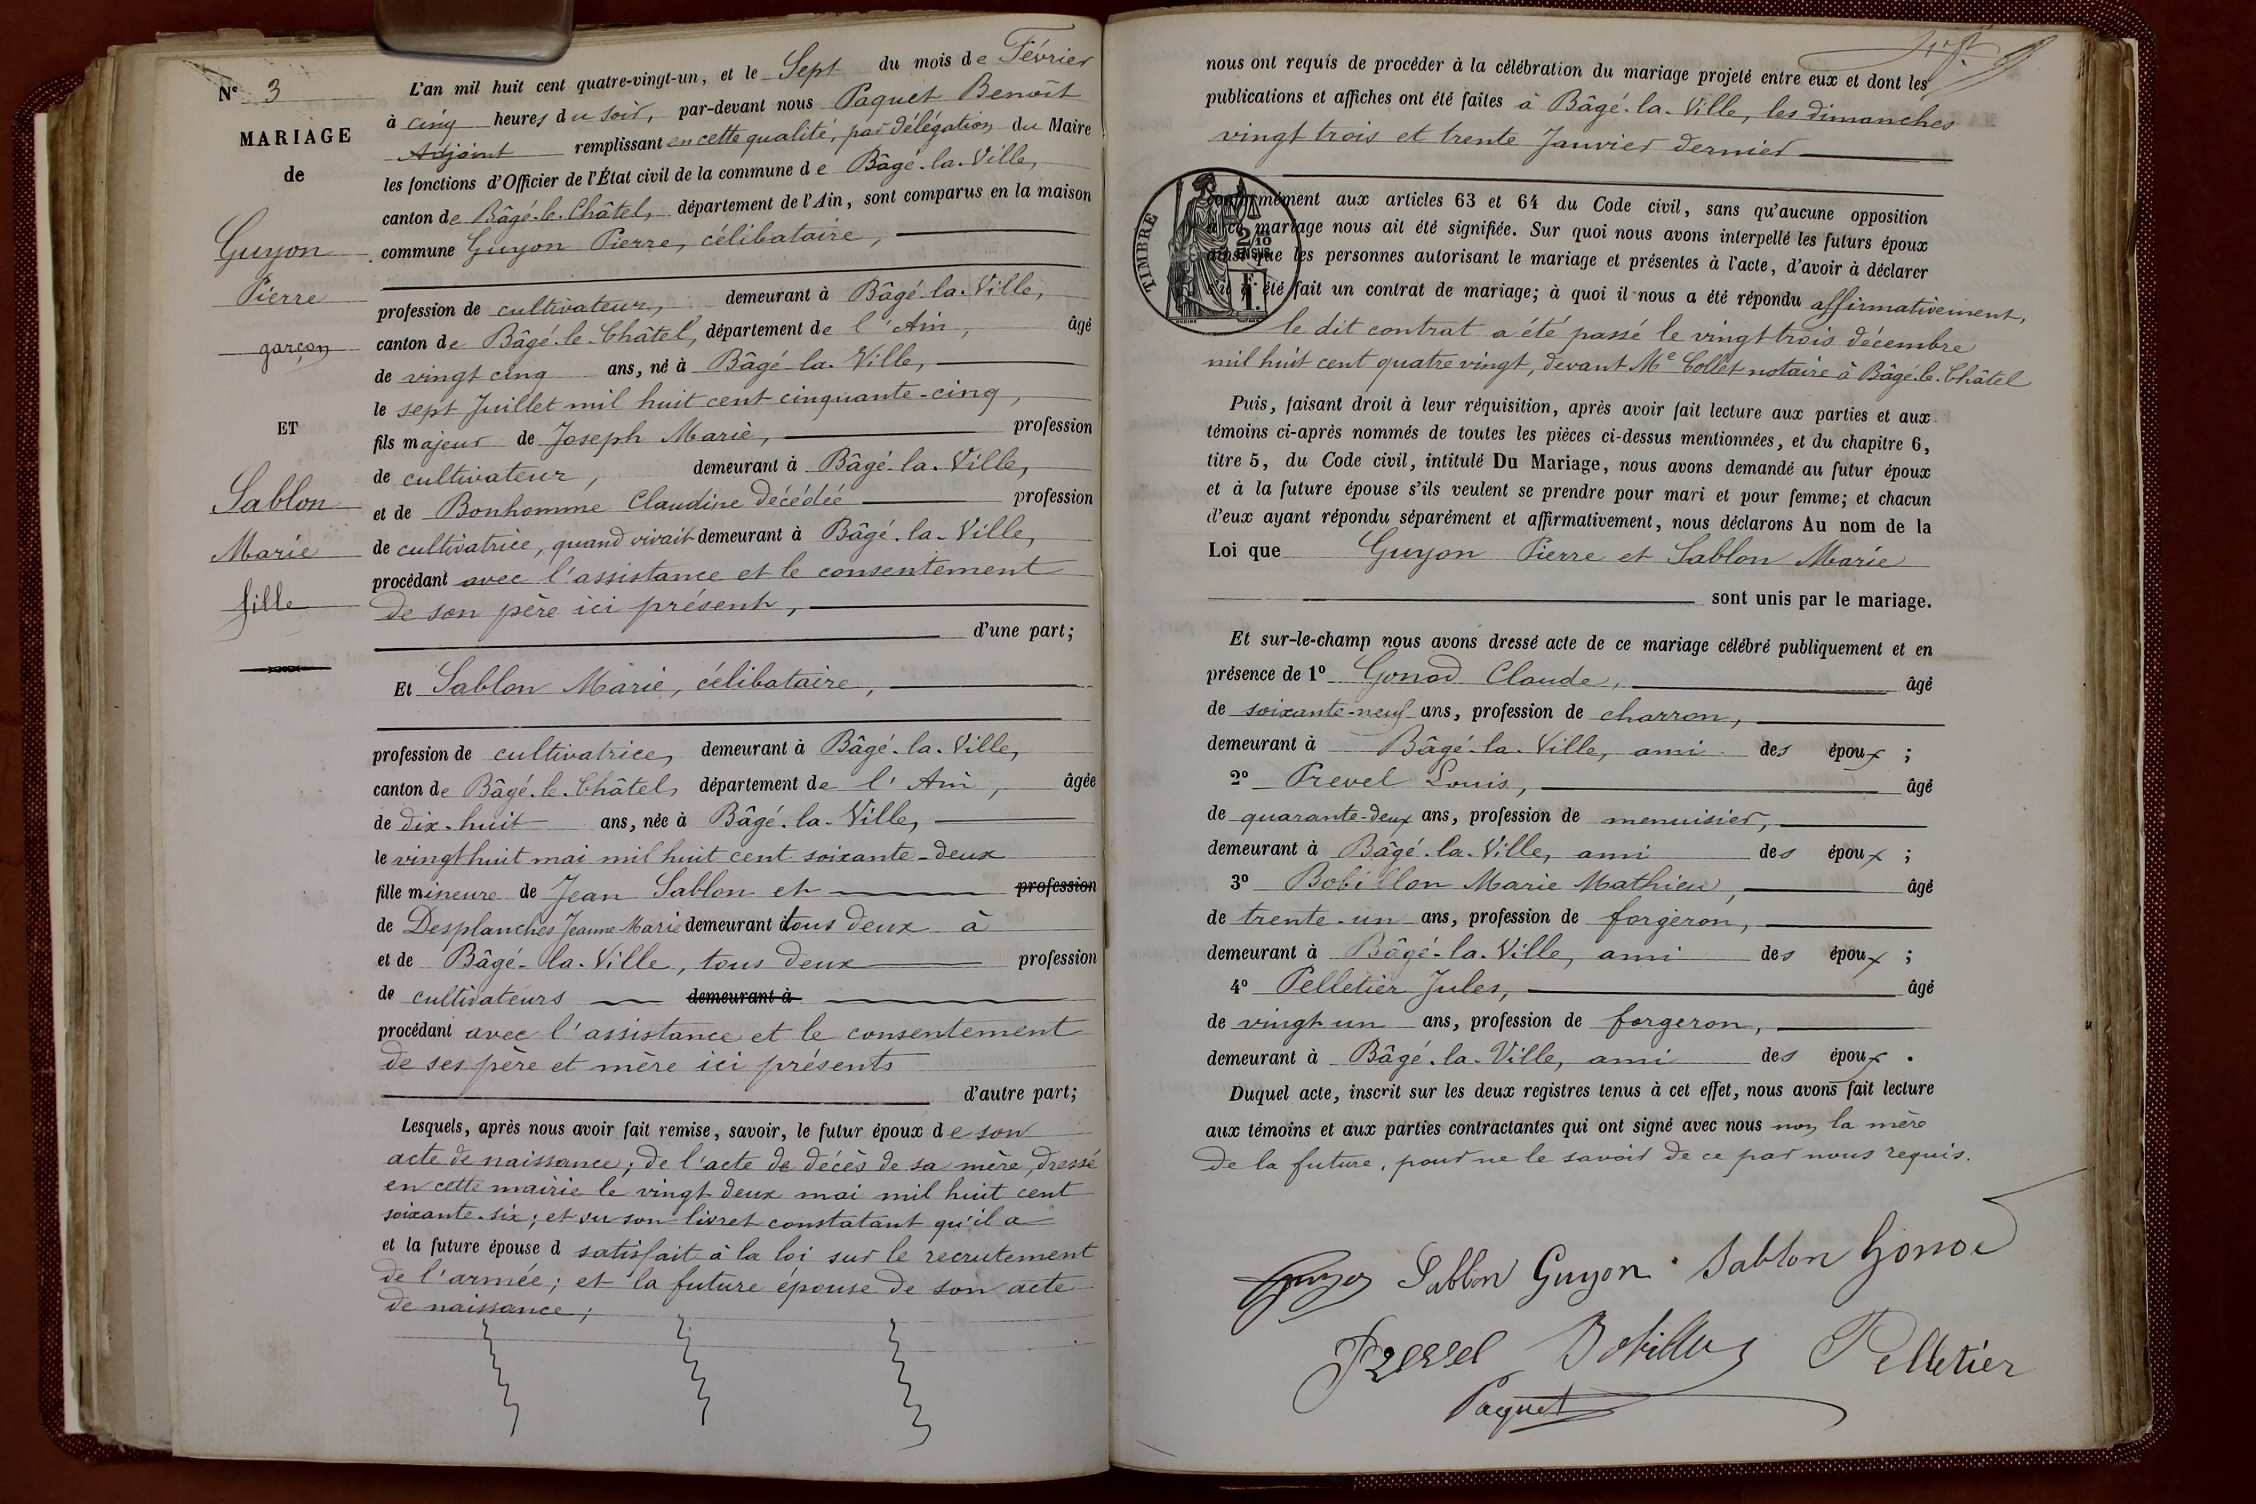 N° 3
MARIAGE
de
Guyon
Pierre
garçon
ET
Sablon
Marie
fille
L'an mil huit cent quatre-vingt-un, et le Sept du mois de Février
à cinq heures du soir, par-devant nous Paquet Benoît
Adjoint remplissant en cette qualité, par délégation du Maire
les fonctions d'Officier de l'État civil de la commune de Bâgé-la-Ville,
canton de Bâgé-le-Châtel, département de l'Ain, sont comparus en la maison
commune Guyon Pierre, célibataire,
profession de cultivateur, demeurant à Bâgé-la-Ville,
canton de Bâgé-le-Châtel, département de l'Ain, âgé
de vingt cinq ans, né à Bâgé-la-Ville,
le sept Juillet mil huit cent cinquante-cinq,
fils majeur de Joseph Marie, profession
de cultivateur, demeurant à Bâgé-la-Ville,
et de Bonhomme Claudine décédée profession
de cultivatrice, quand vivait demeurant à Bâgé-la-Ville,
procédant avec l'assistance et le consentement
de son père ici présent,
d'une part;
Et Sablon Marie, célibataire,
profession de cultivatrice, demeurant à Bâgé-la-Ville,
canton de Bâgé-le-Châtel, département de l'Ain, âgée
de dix-huit ans, née à Bâgé-la-Ville,
le vingt huit mai mil huit cent soixante-deux
fille mineure de Jean Sablon et profession
de Desplanches Jeanne Marie demeurant à tous deux à
et de Bâgé-la-Ville, tous deux profession
de cultivateurs demeurant à
procédant avec l'assistance et le consentement
de ses père et mère ici présents
d'autre part;
Lesquels, après nous avoir fait remise, savoir, le futur époux de son
acte de naissance; de l'acte de décès de sa mère, dressé
en cette mairie le vingt deux mai mil huit cent
soixante-six; et vu son livret constatant qu'il a
et la future épouse d satisfait à la loi sur le recrutement
de l'armée; et la future épouse de son acte
de naissance;
nous ont requis de procéder à la célébration du mariage projeté entre eux et dont les
publications et affiches ont été faites à Bâgé-la-Ville, les dimanches
vingt trois et trente Janvier dernier
TIMBRE
2/10
EN SUS
1 F.
conformément aux articles 63 et 64 du Code civil, sans qu'aucune opposition
à ce mariage nous ait été signifiée. Sur quoi nous avons interpellé les futurs époux
ainsi que les personnes autorisant le mariage et présentes à l'acte, d'avoir à déclarer
s'il a été fait un contrat de mariage; à quoi il nous a été répondu affirmativement,
le dit contrat a été passé le vingt trois décembre
mil huit cent quatre vingt, devant Me Collet notaire à Bâgé-le-Châtel
Puis, faisant droit à leur réquisition, après avoir fait lecture aux parties et aux
témoins ci-après nommés de toutes les pièces ci-dessus mentionnées, et du chapitre 6,
titre 5, du Code civil, intitulé Du Mariage, nous avons demandé au futur époux
et à la future épouse s'ils veulent se prendre pour mari et pour femme; et chacun
d'eux ayant répondu séparément et affirmativement, nous déclarons Au nom de la
Loi que Guyon Pierre et Sablon Marie
sont unis par le mariage.
Et sur-le-champ nous avons dressé acte de ce mariage célébré publiquement et en
présence de 1° Gonod Claude, âgé
de soixante-neuf ans, profession de charron,
demeurant à Bâgé-la-Ville, ami des époux;
2° Prevel Louis, âgé
de quarante-deux ans, profession de menuisier,
demeurant à Bâgé-la-Ville, ami des époux;
3° Bobillon Marie Mathieu, âgé
de trente-un ans, profession de forgeron,
demeurant à Bâgé-la-Ville, ami des époux;
4° Pelletier Jules, âgé
de vingt un ans, profession de forgeron,
demeurant à Bâgé-la-Ville, ami des époux.
Duquel acte, inscrit sur les deux registres tenus à cet effet, nous avons fait lecture
aux témoins et aux parties contractantes qui ont signé avec nous non la mère
de la future, pour ne le savoir de ce par nous requis.
Guyon Sablon Guyon Sablon Gonod
Prevel Bobillon Pelletier
Paquet